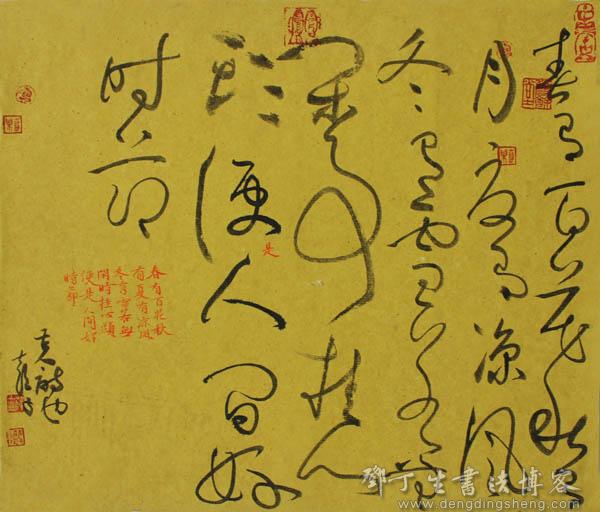 春有百花秋有
月夏有涼風
冬有雪若無
閑事挂心
頭便是人间好
时節
春有百花秋
有夏有涼風
冬有雪若無
閑時挂心頭
便是人间好
時節
鄧丁生書法博客
www.dengdingsheng.com